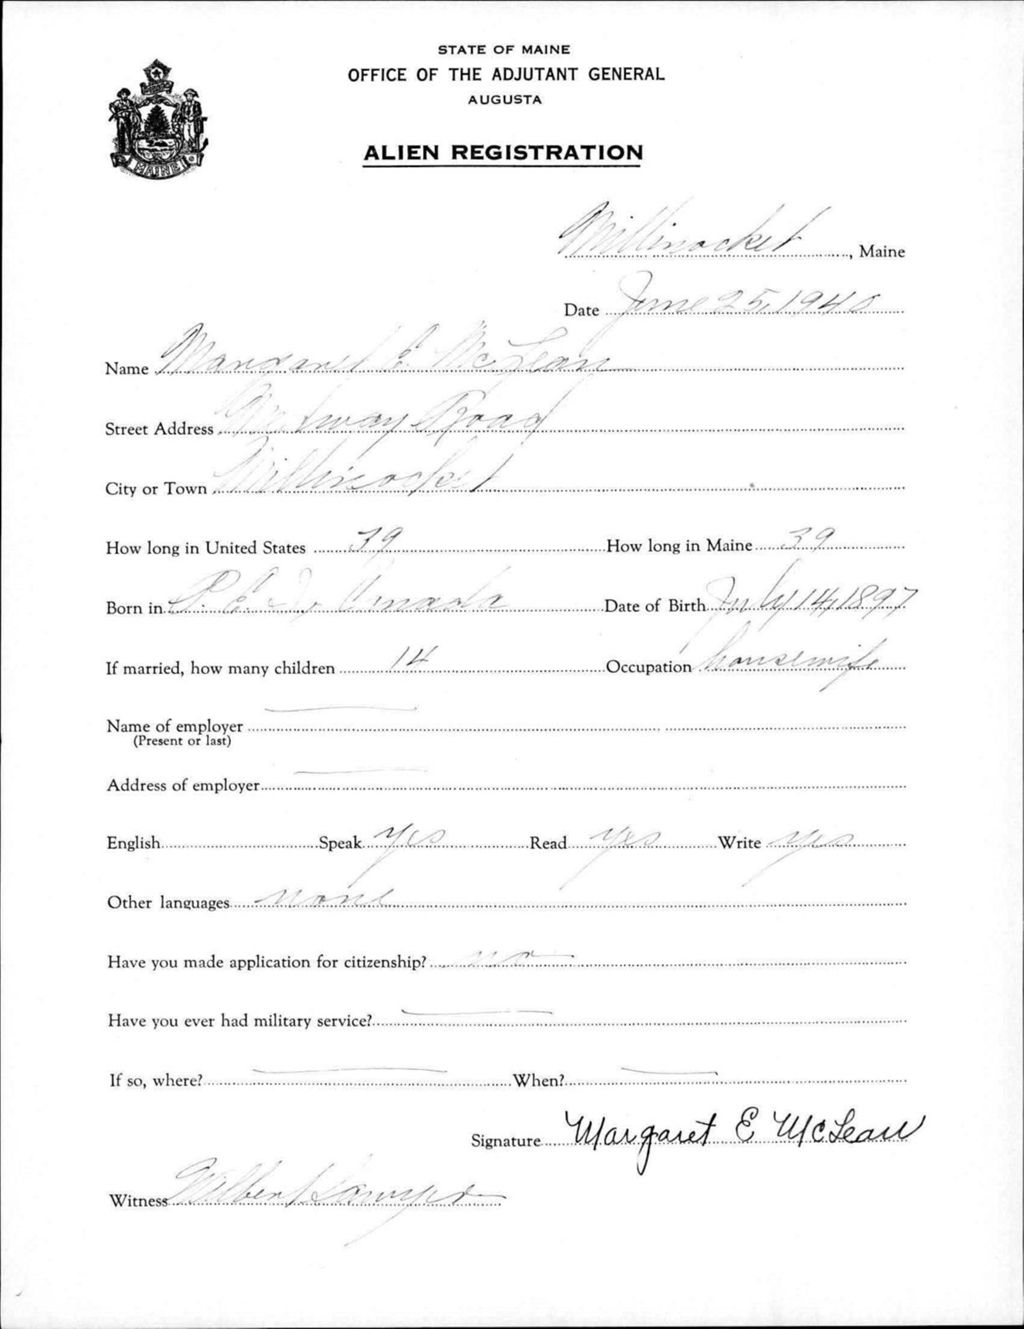 STATE OF MAINE
OFFICE OF THE ADJUTANT GENERAL
AUGUSTA
ALIEN REGISTRATION
MAINE
Millinocket, Maine
Date June 25, 1940
Name Margaret E McLean
Street Address Medway Road
City or Town Millinocket
How long in United States 39 How long in Maine 39
Born in P. E. I, Canada Date of Birth July 14, 1897
If married, how many children 14 Occupation housewife
Name of employer
(Present or last)
Address of employer
English Speak yes Read yes Write yes
Other languages none
Have you made application for citizenship? no
Have you ever had military service?
If so, where? When?
Signature Margaret E McLean
Witness Wilbert Sawyer